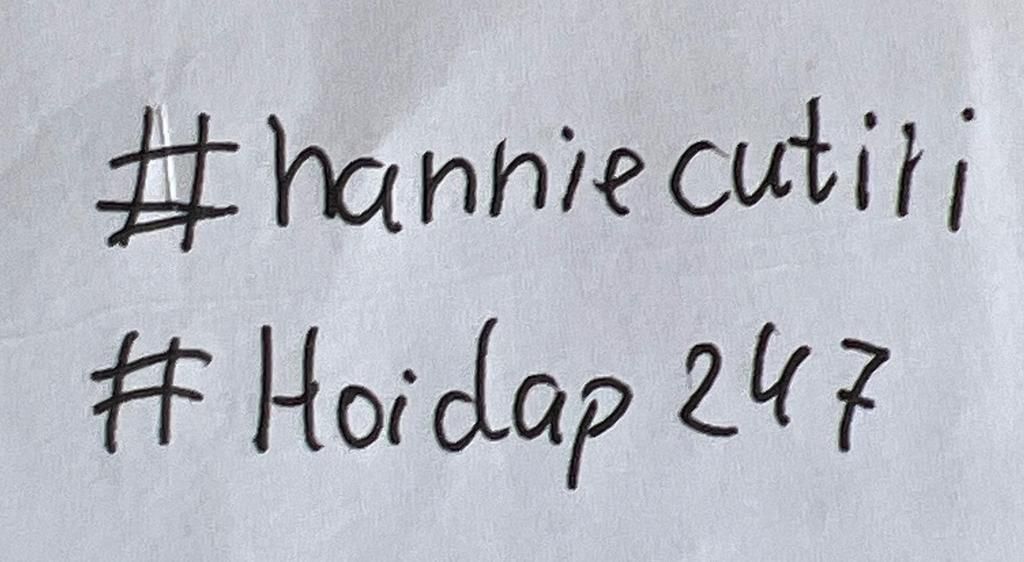 #hanniecutiii
#Hoidap 247